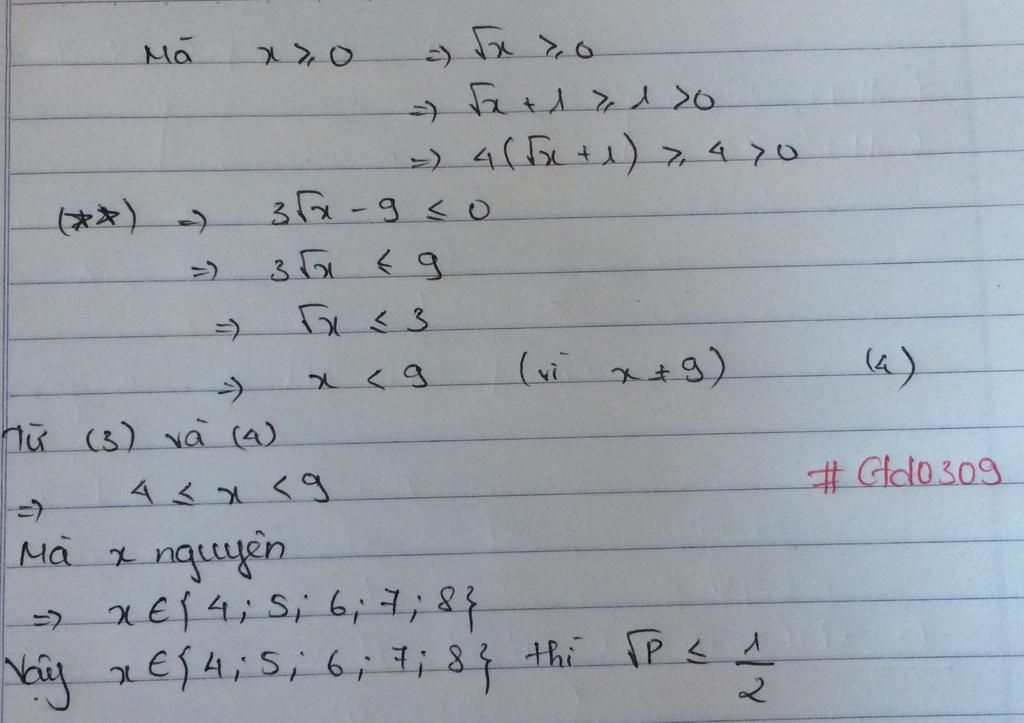 Mà x ⩾ 0 => √x ⩾ 0
=> √x + 1 ⩾ 1 > 0
=> 4(√x + 1) ⩾ 4 > 0
(**) => 3√x - 9 ≤ 0
=> 3√x ≤ 9
=> √x ≤ 3
=> x < 9 (vì x ≠ 9) (4)
Từ (3) và (4)
=> 4 ≤ x < 9
# Gtd0309
Mà x nguyên
=> x ∈ { 4; 5; 6; 7; 8}
Vậy x ∈ { 4; 5; 6; 7; 8} thì √P ≤ 1/2